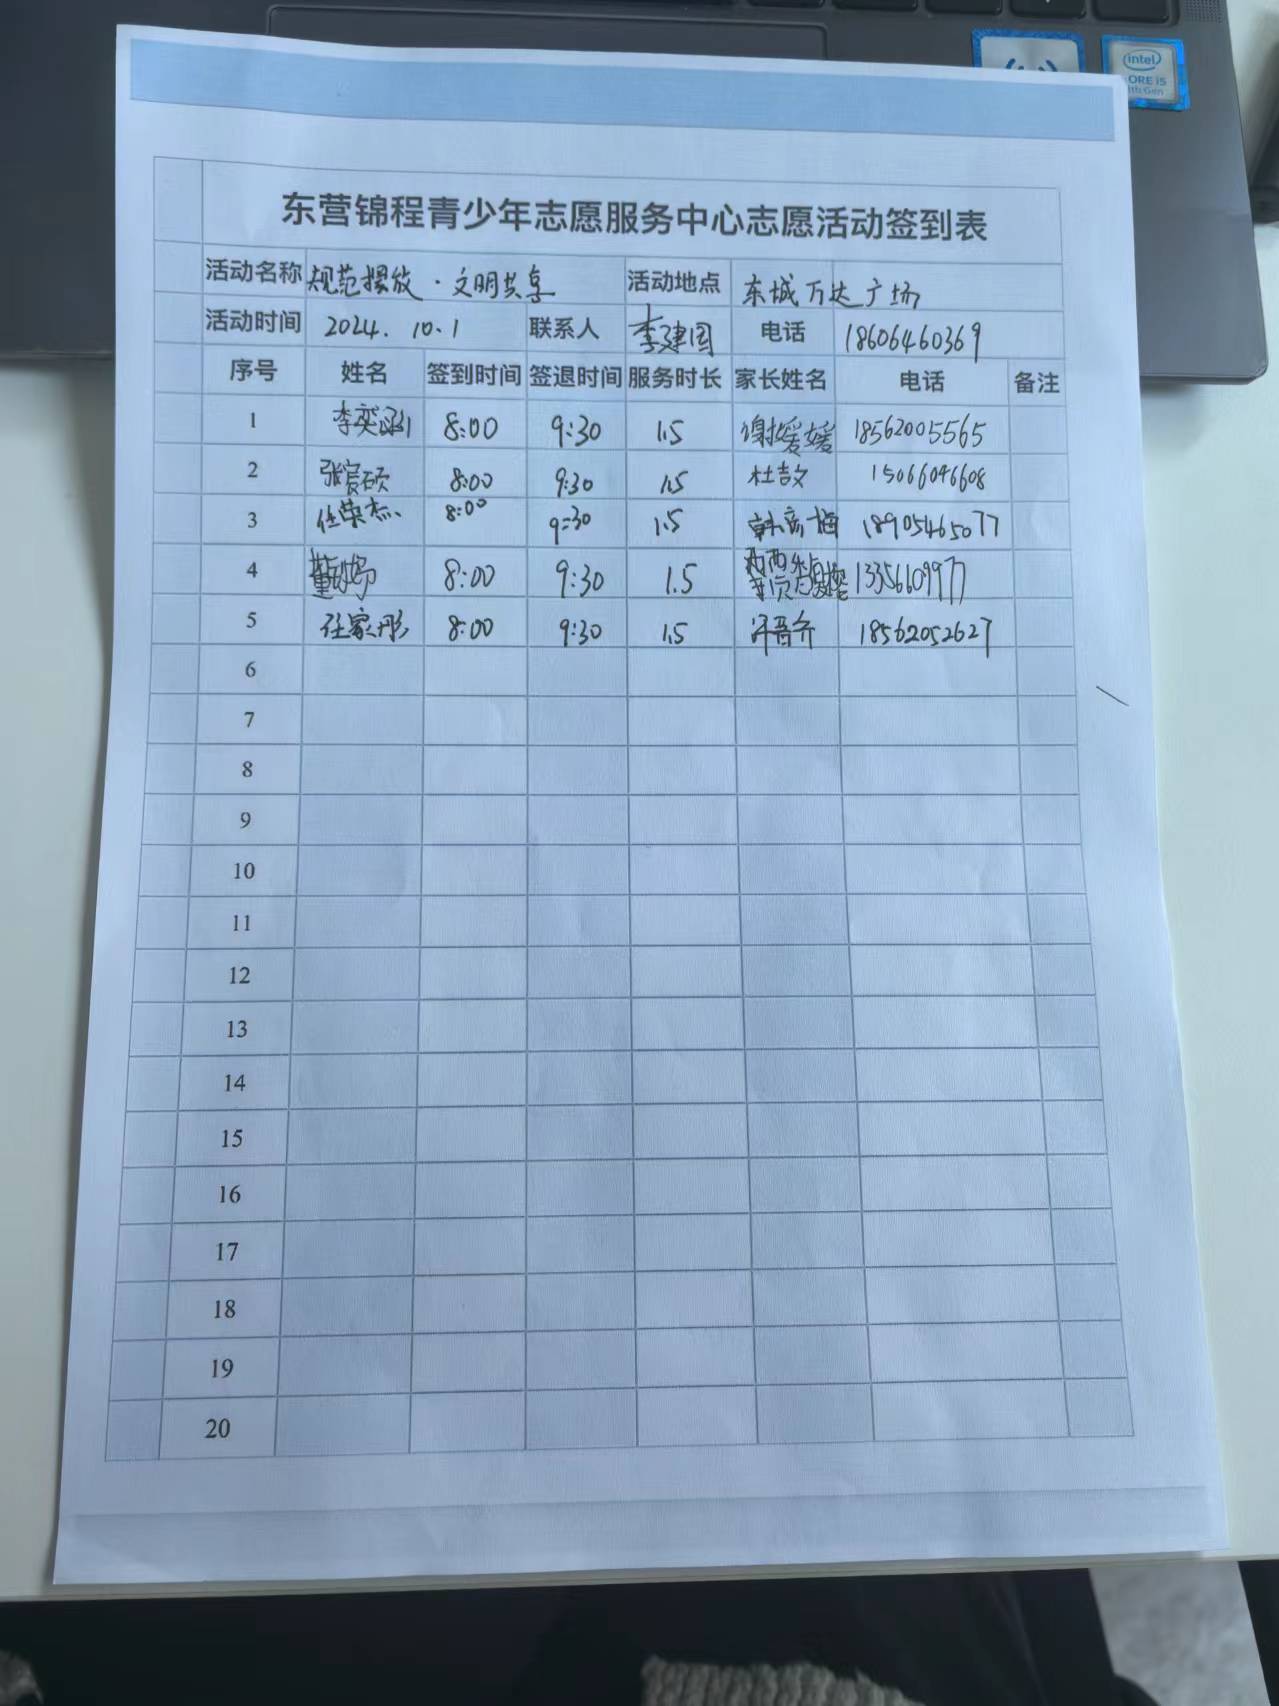 intel
CORE i5
东营锦程青少年志愿服务中心志愿活动签到表
活动名称 规范摆放·文明共享 活动地点 东城万达广场
活动时间 2024.10.1 联系人 李建国 电话 18606460369
序号 姓名 签到时间 签退时间 服务时长 家长姓名 电话 备注
1 李奕涵 8:00 9:30 1.5 谢媛媛 18562005565
2 8:00 9:30 1.5 杜吉文 15066096608
3 任荣杰 8:00 9:30 1.5 18905465077
4 8:00 9:30 1.5 13356609977
5 任家彤 8:00 9:30 1.5 18562052627
6
7
8
9
10
11
12
13
14
15
16
17
18
19
20